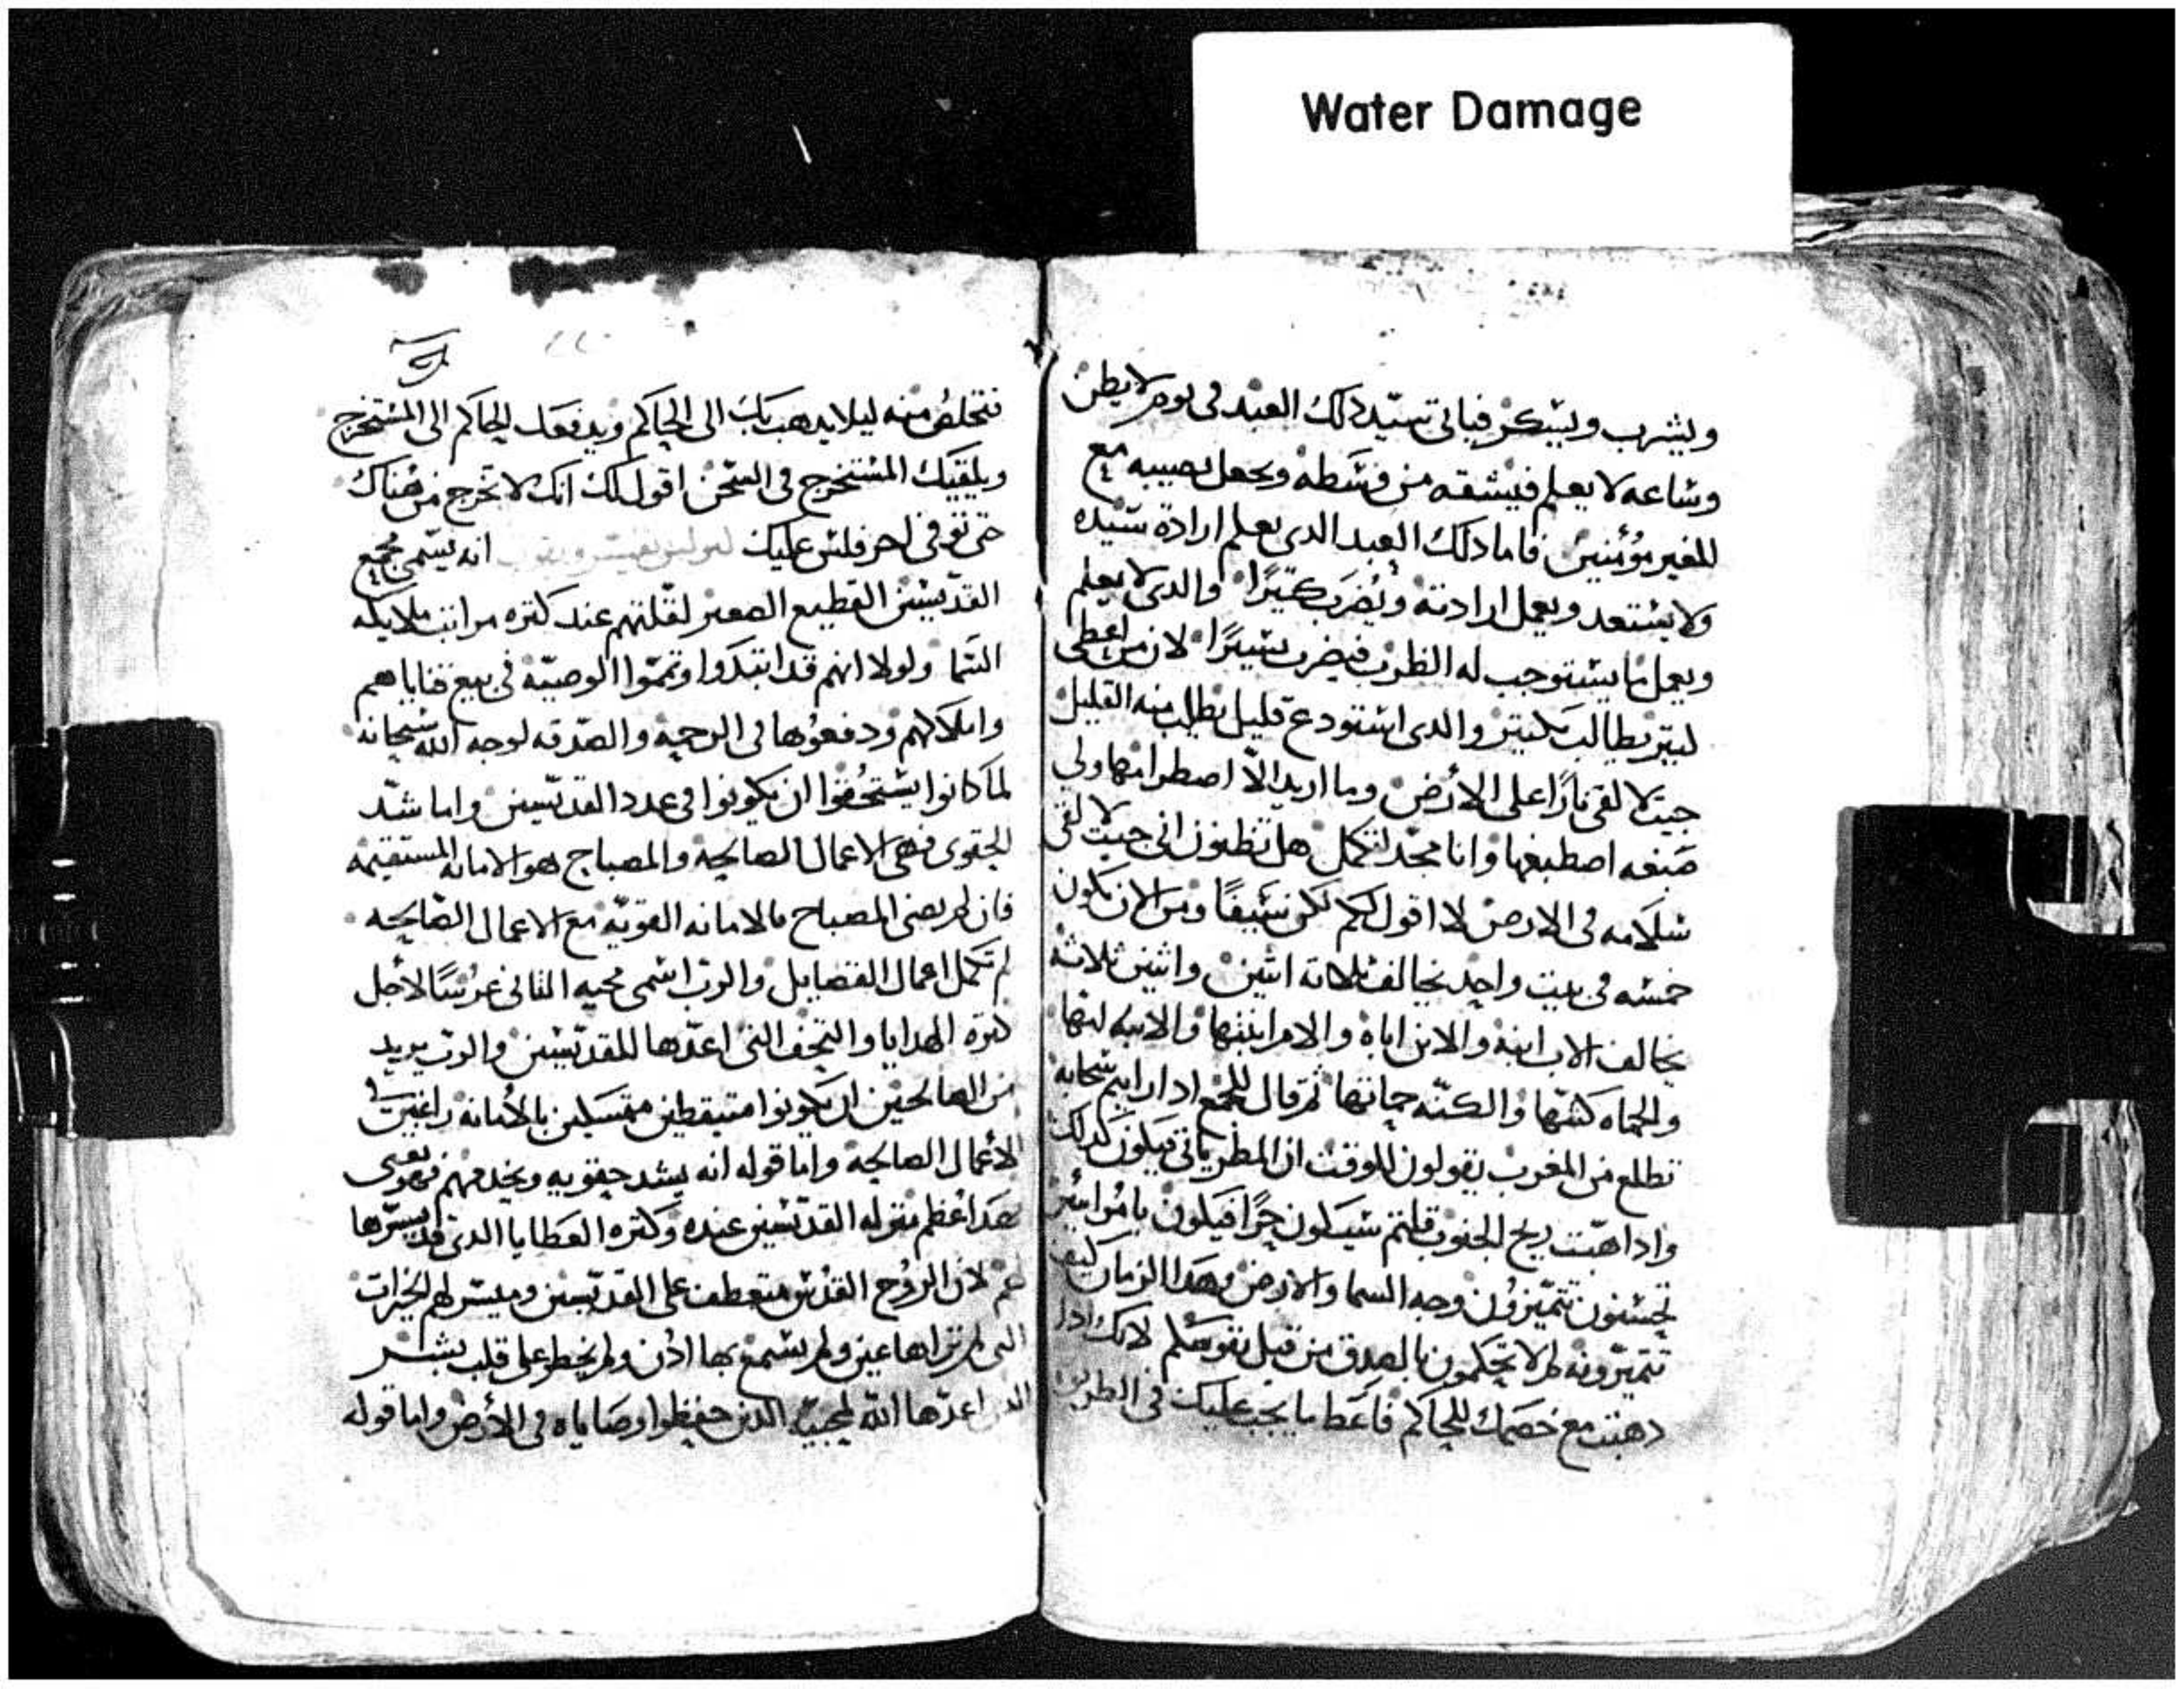 Water Damage
ويشرب ويسكر فياتي سيد دلك العبد في يوم لا يظن
وساعه لا يعلم فيشقه من وسطه ويجعل نصيبه مع
الغير مؤمنين فاما دلك العبد الدي يعلم ارادة سيده
ولا يستعد ويعمل ارادته ويضرب كتيرًا والدي لا يعلم
ويعمل ما يستوجب له الضرب فيضرب يسيرًا لان من اعطي
كتير يطالب بكتير والدي استودع قليل يطلب منه القليل
جيت لالقي نارًا على الأرض وما اريد الّا اضطرامها ولي
صبغه اصطبغها وانا مجد لتكمل هل تظنون اني جيت لالقي
سلامه في الارض لا اقول لكم لكن سيفًا ومن الان تكون
خمسه في بيت واحد يخالف تلاته اتنين واتنين تلاته
يخالف الاب ابنه والابن اباه والام ابنتها والابنه امها
والحماه كنتها والكنّه حماتها تم قال للجمع ادا رايتم سحابه
تطلع من المغرب تقولون للوقت ان المطر ياتي فيكون كدلك
وادا هبّت ريح الجنوب قلتم سيكون حرًا فيكون يا مرايين
تحسنون تميّزون وجه السما والارض وهدا الزمان كيف
تميزونه لم لا تحكمون بالصدق من قبل نفوسكم لانك ادا
دهبت مع خصمك للحاكم فاعط ما يجب عليك في الطريق
فتخلص منه ليلا يدهب بك الى الحاكم ويدفعك الحاكم الى المستخرج
ويلقيك المستخرج في السجن اقول لك انك لا تخرج من هناك
حتى توفي اخر فلس عليك انه يسمى مجمع
القدّيسين القطيع الصغير لقلتهم عند كتره مراتب ملايكه
السما ولولا انهم قد ابتدوا وتمّوا الوصيّه في بيع قناياهم
واملاكهم ودفعوها في الرحمه والصدقه لوجه الله سبحانه
لما كانوا يستحقوا ان يكونوا في عدد القديسين واما شدّ
الحقوى فهي الاعمال الصالحه والمصباح هو الامانه المستقيمه
فان لم يضى المصباح بالامانه القويّه مع الاعمال الصالحه
لم تكمل اعمال الفضايل والرب اسمى مجيه التاني عرسًا لاجل
كتره الهدايا والتحف التي اعدّها للقديسين والرب يريد
من الصالحين ان يكونوا متيقظين متمسكين بالأمانه راغبين في
الأعمال الصالحه واما قوله انه يشد حقويه ويخدمهم فهو يعني
بهدا عظم منزله القديسين عنده وكتره العطايا الدي قد يسّرها
لهم لان الروح القدس متعطف على القديسين وميسر لهم الخيرات
التي لم تراها عين ولم يسمع بها ادن ولم يخطر على قلب بشر
الدي اعدّها الله لمحبيه الدين حفظوا وصاياه في الأرض واما قوله